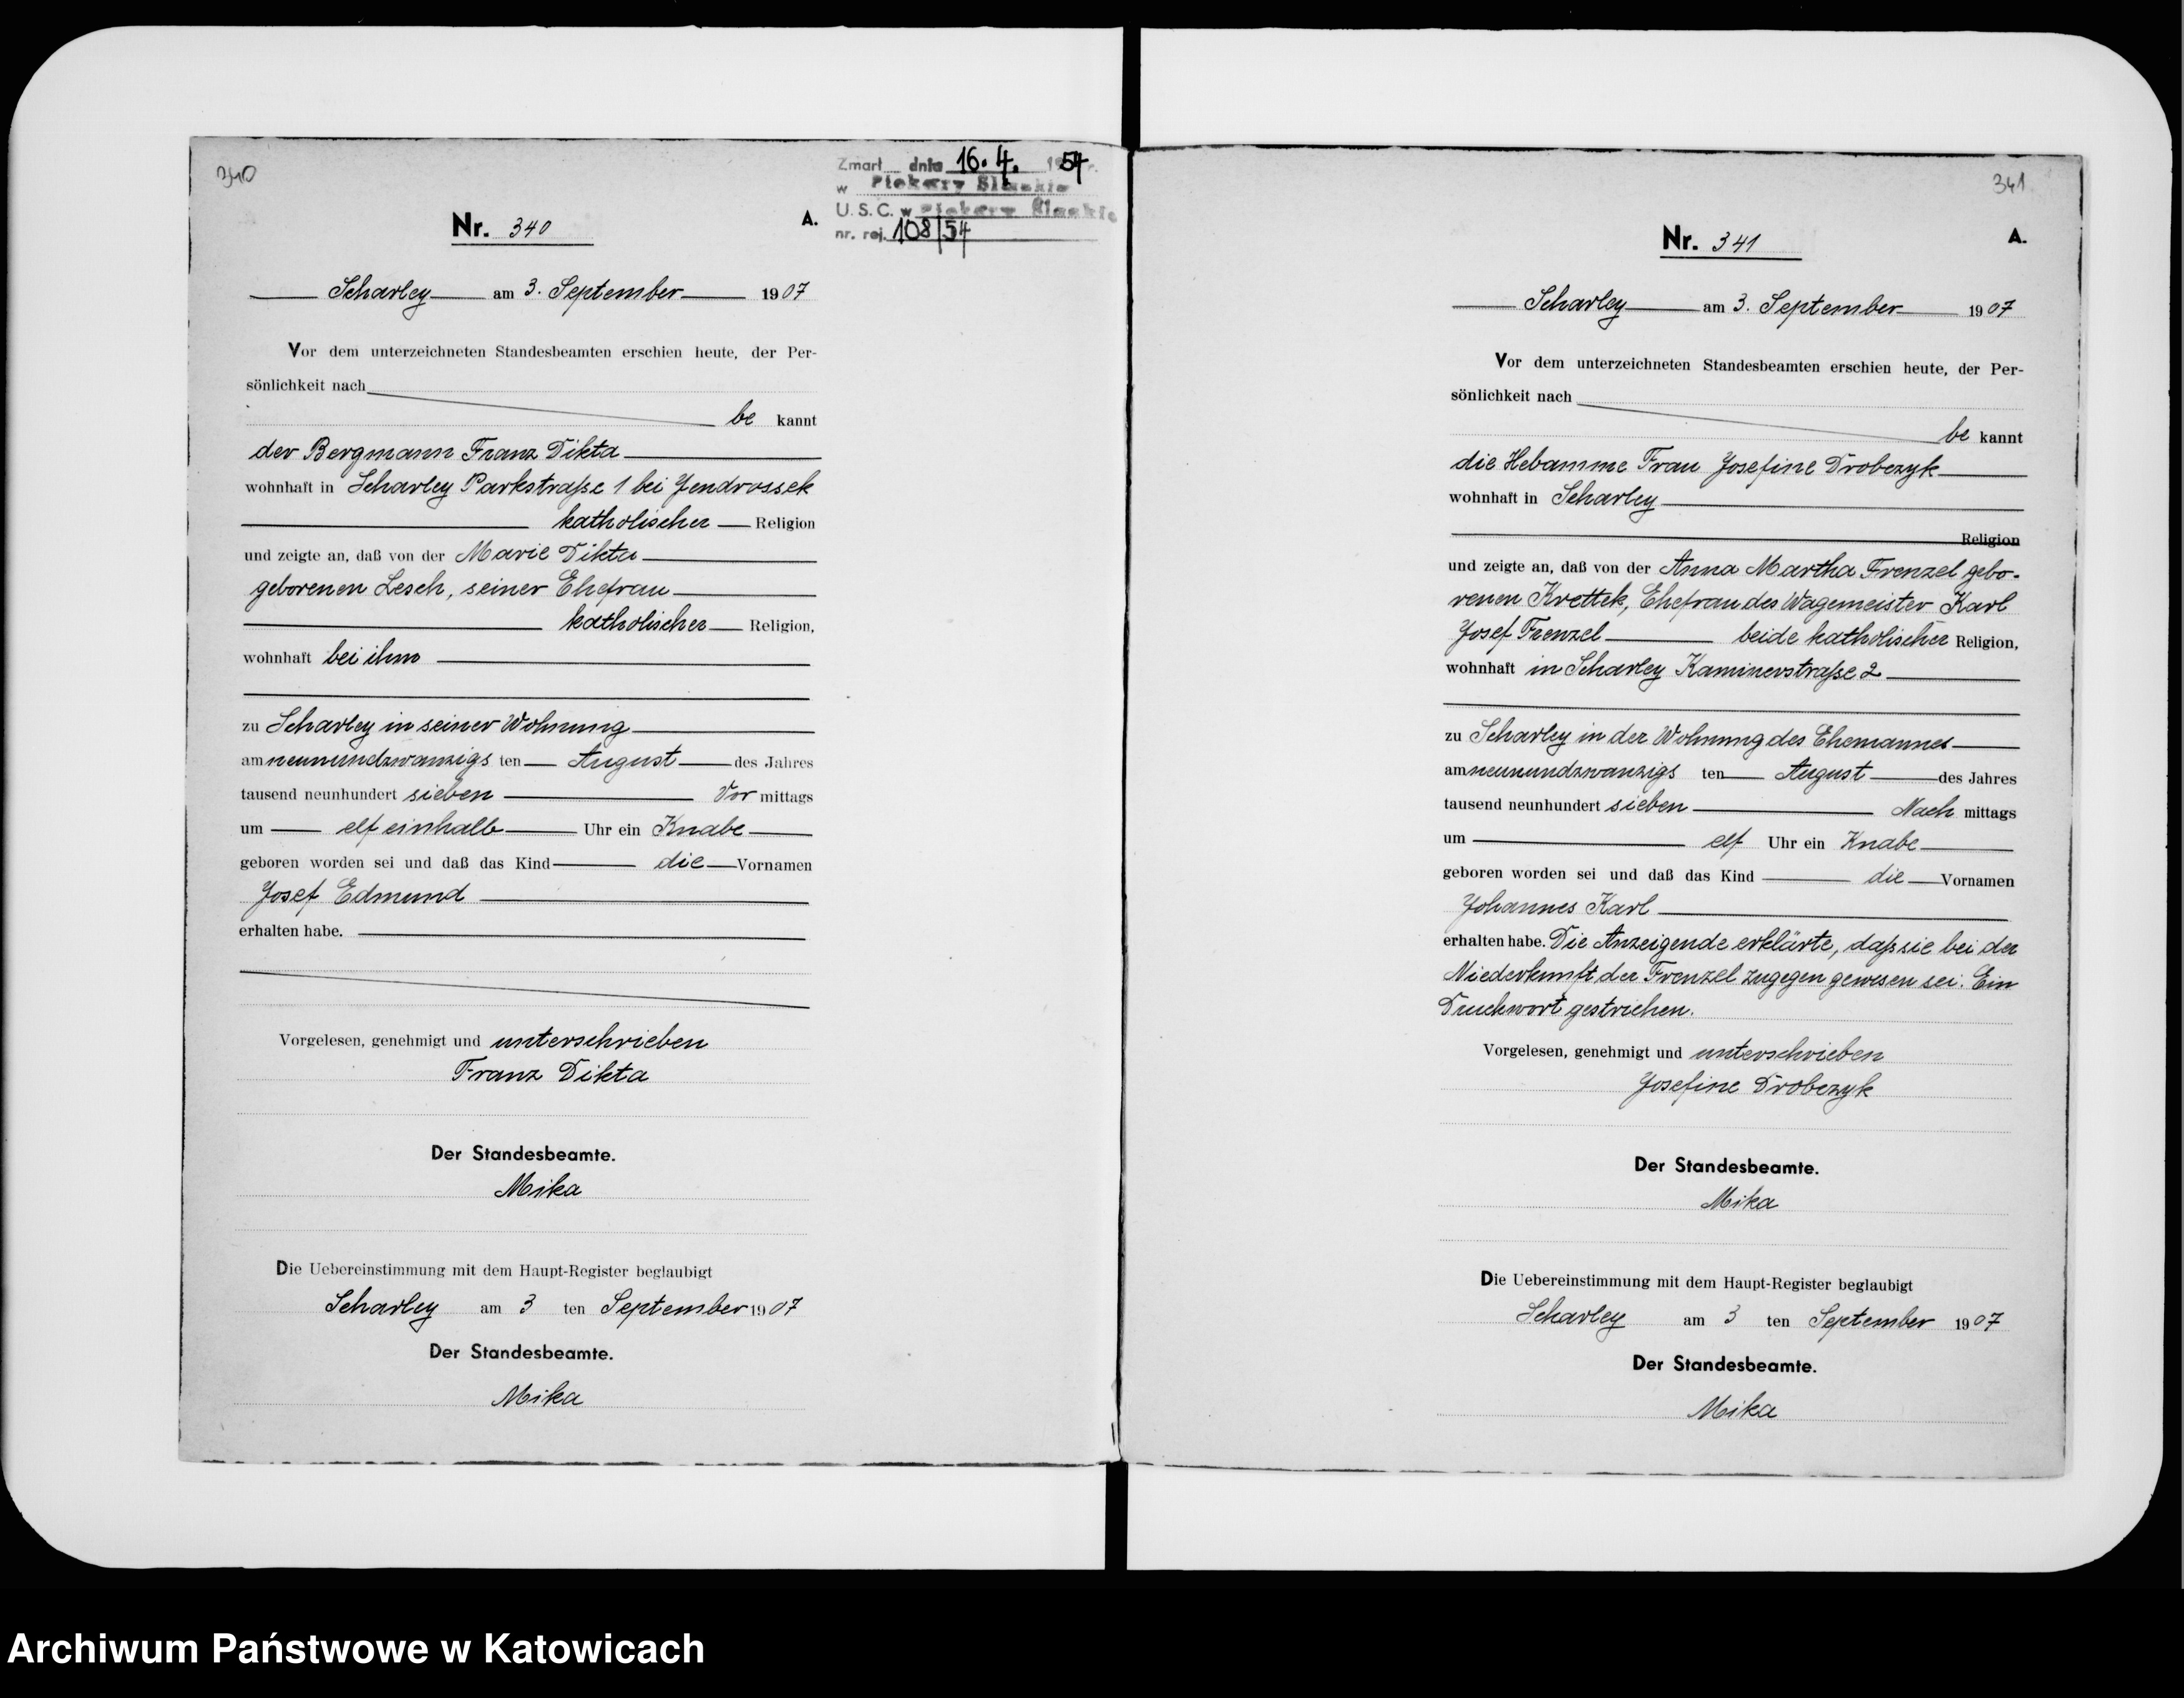 340
Zmarł dnia 16.4. 1954 r.
w Piekary Śląskie
U.S.C. w Piekary Śląskie
nr. rej. 108/54
Nr. 340
A.
Scharley am 3. September 1907
Vor dem unterzeichneten Standesbeamten erschien heute, der Per-
sönlichkeit nach
be kannt
der Bergmann Franz Dikta
wohnhaft in Scharley Parkstraße 1 bei Jendrossek
katholischer Religion
und zeigte an, daß von der Marie Dikta
geborenen Lesch, seiner Ehefrau
katholischer Religion,
wohnhaft bei ihm
zu Scharley in seiner Wohnung
am neunundzwanzigs ten August des Jahres
tausend neunhundert sieben Vor mittags
um elf einhalb Uhr ein Knabe
geboren worden sei und daß das Kind die Vornamen
Josef Edmund
erhalten habe.
Vorgelesen, genehmigt und unterschrieben
Franz Dikta
Der Standesbeamte.
Mika
Die Uebereinstimmung mit dem Haupt-Register beglaubigt
Scharley am 3 ten September 1907
Der Standesbeamte.
Mika
341
Nr. 341
A.
Scharley am 3. September 1907
Vor dem unterzeichneten Standesbeamten erschien heute, der Per-
sönlichkeit nach
be kannt
die Hebamme Frau Josefine Drobczyk
wohnhaft in Scharley
Religion
und zeigte an, daß von der Anna Martha Frenzel gebo-
renen Krettek, Ehefrau des Wagemeister Karl
Josef Frenzel beide katholischer Religion,
wohnhaft in Scharley Kaminerstraße 2
zu Scharley in der Wohnung des Ehemannes
am neunundzwanzigs ten August des Jahres
tausend neunhundert sieben Nach mittags
um elf Uhr ein Knabe
geboren worden sei und daß das Kind die Vornamen
Johannes Karl
erhalten habe. Die Anzeigende erklärte, daß sie bei der
Niederkunft der Frenzel zugegen gewesen sei. Ein
Druckwort gestrichen.
Vorgelesen, genehmigt und unterschrieben
Josefine Drobczyk
Der Standesbeamte.
Mika
Die Uebereinstimmung mit dem Haupt-Register beglaubigt
Scharley am 3 ten September 1907
Der Standesbeamte.
Mika
Archiwum Państwowe w Katowicach